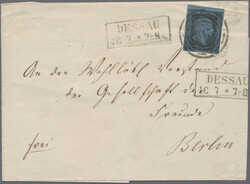 DESSAU
16 7 * 7-8
DESSAU
16 7 * 7-8
An den Wohllöbl. Vorstand
der Gesellschaft der
Freunde
frei
Berlin